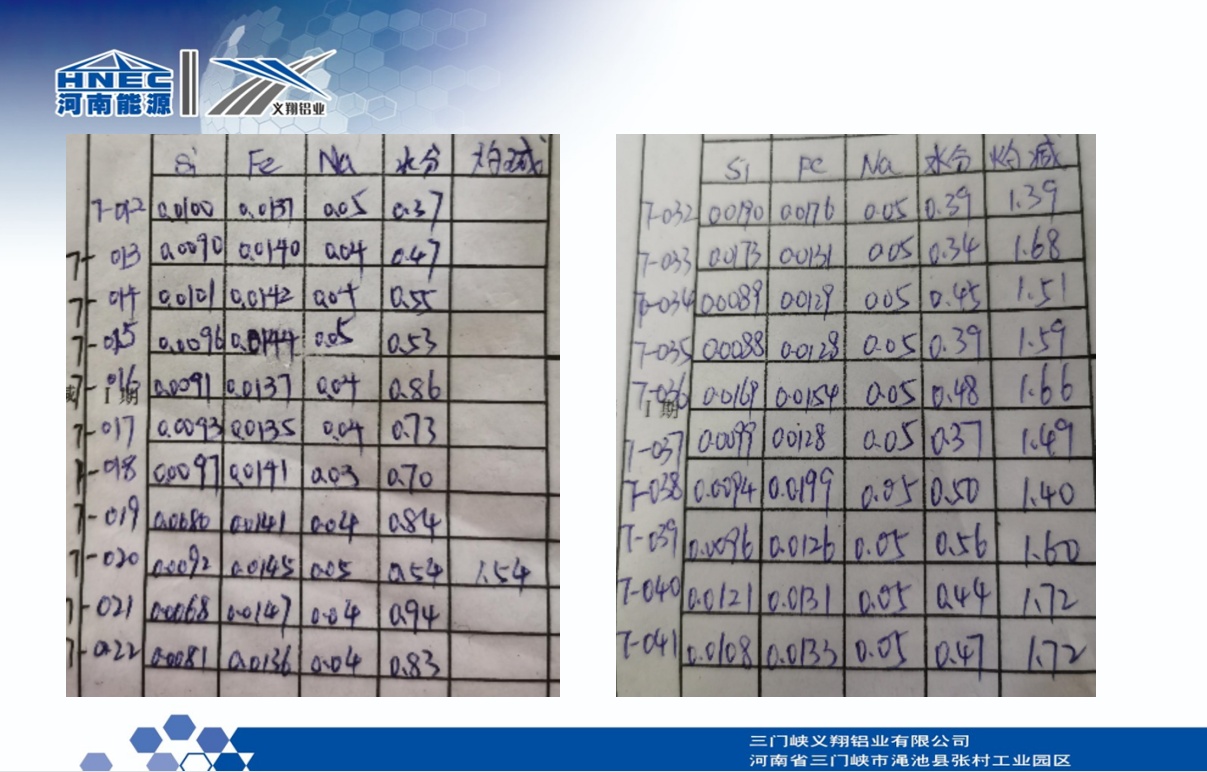 HNEC
河南能源
义翔铝业
Si Fe Na 水分 灼减
7-012 0.0100 0.0137 0.05 0.37
7-013 0.0090 0.0140 0.04 0.47
7-014 0.0101 0.0142 0.04 0.55
7-015 0.0096 0.0144 0.05 0.53
7-016 0.0091 0.0137 0.04 0.86
I 期
7-017 0.0093 0.0135 0.04 0.73
7-018 0.0097 0.0141 0.03 0.70
7-019 0.0080 0.0141 0.04 0.84
7-020 0.0092 0.0145 0.05 0.54 1.54
7-021 0.0068 0.0147 0.04 0.94
7-022 0.0081 0.0136 0.04 0.83
Si Fe Na 水分 灼减
7-032 0.0190 0.0176 0.05 0.39 1.39
7-033 0.0173 0.0131 0.05 0.34 1.68
7-034 0.0089 0.0129 0.05 0.45 1.51
7-035 0.0088 0.0128 0.05 0.39 1.59
7-036 0.0169 0.0154 0.05 0.48 1.66
I 期
7-037 0.0099 0.0128 0.05 0.37 1.49
7-038 0.0094 0.0199 0.05 0.50 1.40
7-039 0.0096 0.0126 0.05 0.56 1.60
7-040 0.0121 0.0131 0.05 0.44 1.72
7-041 0.0108 0.0133 0.05 0.47 1.72
三门峡义翔铝业有限公司
河南省三门峡市渑池县张村工业园区